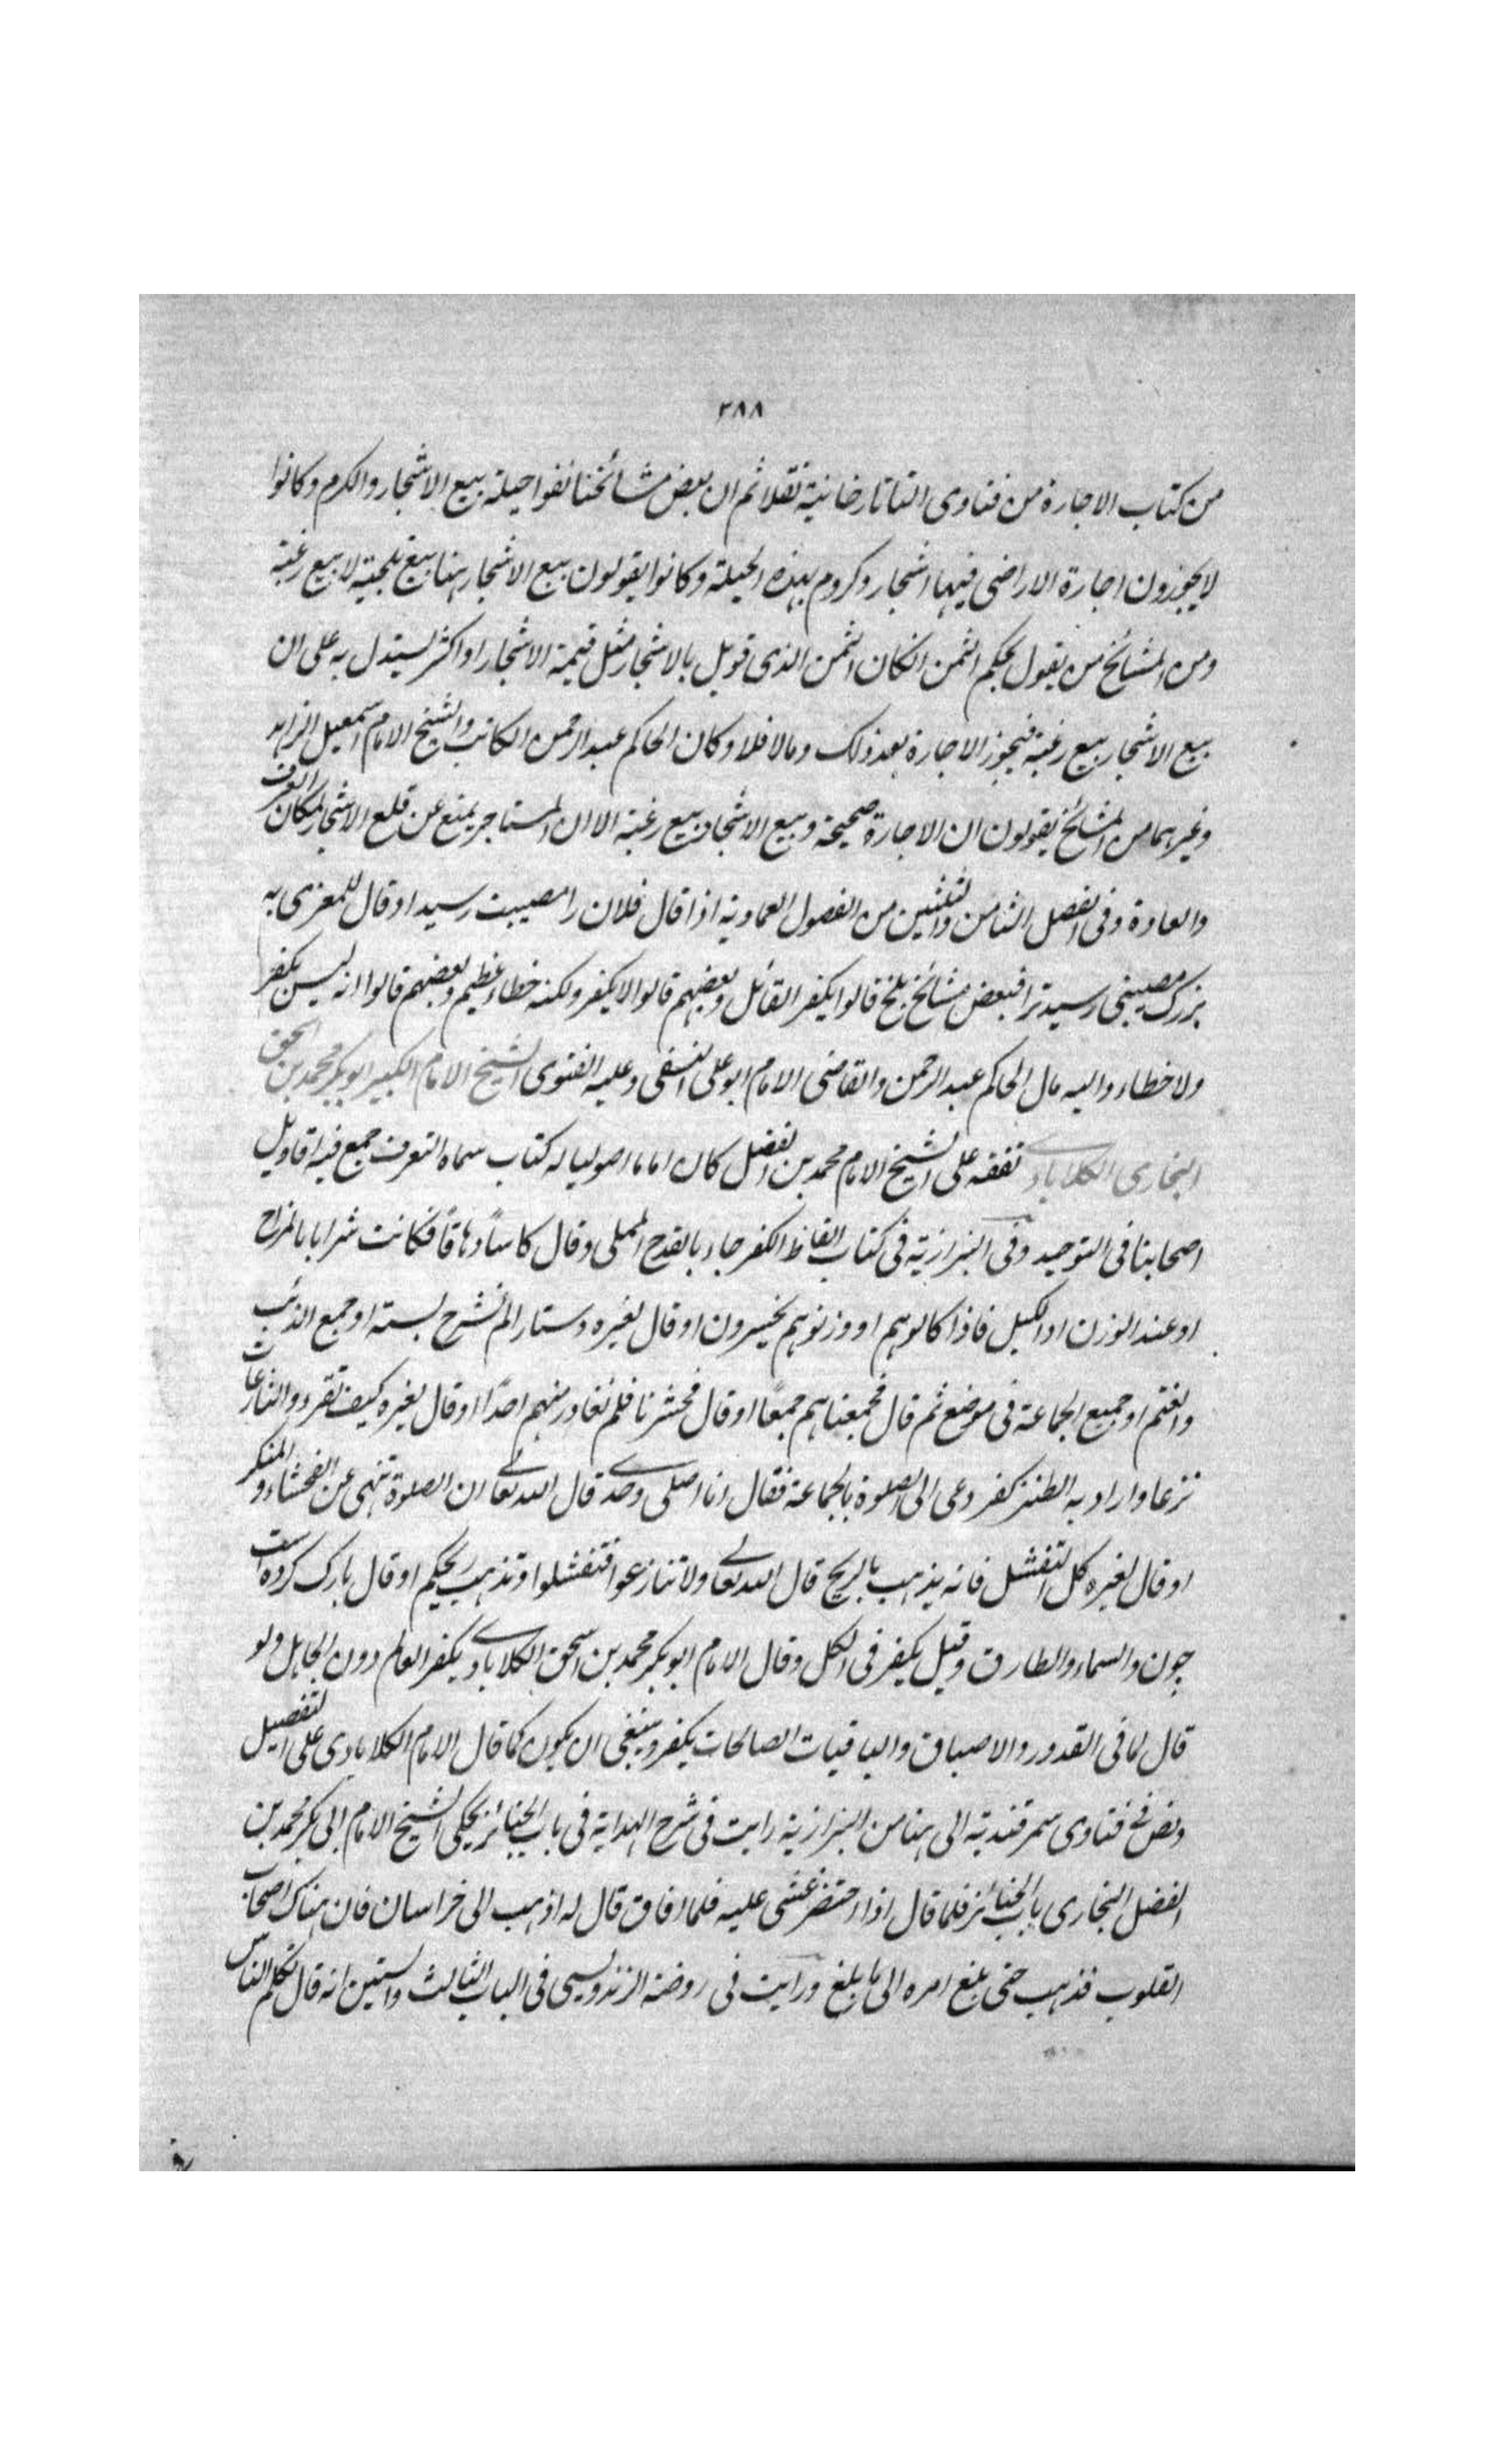 ٢٨٨
من كتاب الاجارة من فتاوى التاتارخانية نقلا ثم ان بعض مشائخنا نفوا حيلة بيع الاشجار والكرم وكانوا
لا يجوزون اجارة الاراضى فيها اشجار وكروم بهذه الحيلة وكانوا يقولون بيع الاشجار هنا بيع تلجية لا بيع رغبة
ومن المشائخ من يقول بحكم الثمن انكان الثمن الذى قوبل بالاشجار مثل قيمة الاشجار او اكثر يستدل به على ان
بيع الاشجار بيع رغبة فيجوز الاجارة بعد ذلك ومالا فلا وكان الحاكم عبد الرحمن الكاتب والشيخ الامام اسمعيل الزاهد
وغيرهما من المشائخ يقولون ان الاجارة صحيحة وبيع الاشجار بيع رغبة الا ان المستاجر يمنع عن قلع الاشجار لمكان العرف
والعادة وفى الفصل الثامن والثلثين من الفصول العمادية اذا قال فلان را مصيبت رسيد او قال للمعزى به
بزرك مصيبتى رسيد ترا فبعض مشائخ بلخ قالوا يكفر القائل وبعضهم قالوا لا يكفر ولكنه خطاء عظيم وبعضهم قالوا انه ليس بكفر
ولا خطاء واليه مال الحاكم عبد الرحمن والقاضى الامام ابو على النسفى وعليه الفتوى الشيخ الامام الكبير ابو بكر محمد بن اسحق
البخارى الكلابادى تفقه على الشيخ الامام محمد بن الفضل كان اماما اصوليا له كتاب سماه التعرف جمع فيه اقاويل
اصحابنا فى التوحيد وفى البزازية فى كتاب الفاظ الكفر جاء بالقدح المملى وقال كاسًا دهاقًا فكانت شرابا بالمزاح
او عند الوزن او الكيل فاذا كالوهم او وزنوهم يخسرون او قال لغيره دستار الم نشرح بسته او جمع الذئب
والغنم او جميع الجماعة فى موضع ثم قال فجمعناهم جمعًا او قال فحشرنا فلم نغادر منهم احدًا او قال لغيره كيف تقرء والنازعات
نزعا واراد به الطنز كفر دعى الى الصلوة بالجماعة فقال انا اصلى وحدى قال الله تعالى ان الصلوة تنهى عن الفحشاء والمنكر
او قال لغيره كل التفشل فانه يذهب بالريح قال الله تعالى ولا تنازعوا فتفشلوا وتذهب ريحكم او قال پارك كرده است
چون والسماء والطارق وقيل يكفر فى الكل وقال الامام ابو بكر محمد بن اسحق الكلابادى يكفر العالم دون الجاهل ولو
قال لما فى القدور والاصباق والباقيات الصالحات يكفر وينبغى ان يكون كما قال الامام الكلابادى على التفصيل
ونص فى فتاوى سمرقندية الى هنا من البزازية رايت فى شرح الهداية فى باب الجنائز يحكى الشيخ الامام ابى بكر محمد بن
الفضل البخارى باب الجنائز فلما قال اذا احتضر غشى عليه فلما افاق قال له اذهب الى خراسان فان هناك اصحاب
القلوب فذهب حتى بلغ امره الى ما بلغ ورايت فى روضة الزندويسى فى الباب الثالث والستين انه قال تكلم الناس